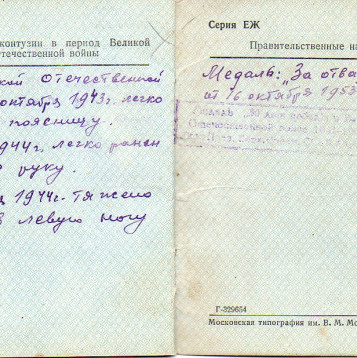 контузии в период Великой
Отечественной войны
Отечественной
октября 1943г. легко
поясницу.
1944г. легко ранен
руку.
1944г. тяжело
в левую ногу
Серия ЕЖ
Правительственные на
Медаль: „За отва
от 16 октября 1953
Медаль
Г-329654
Московская типография им. В. М. Мо